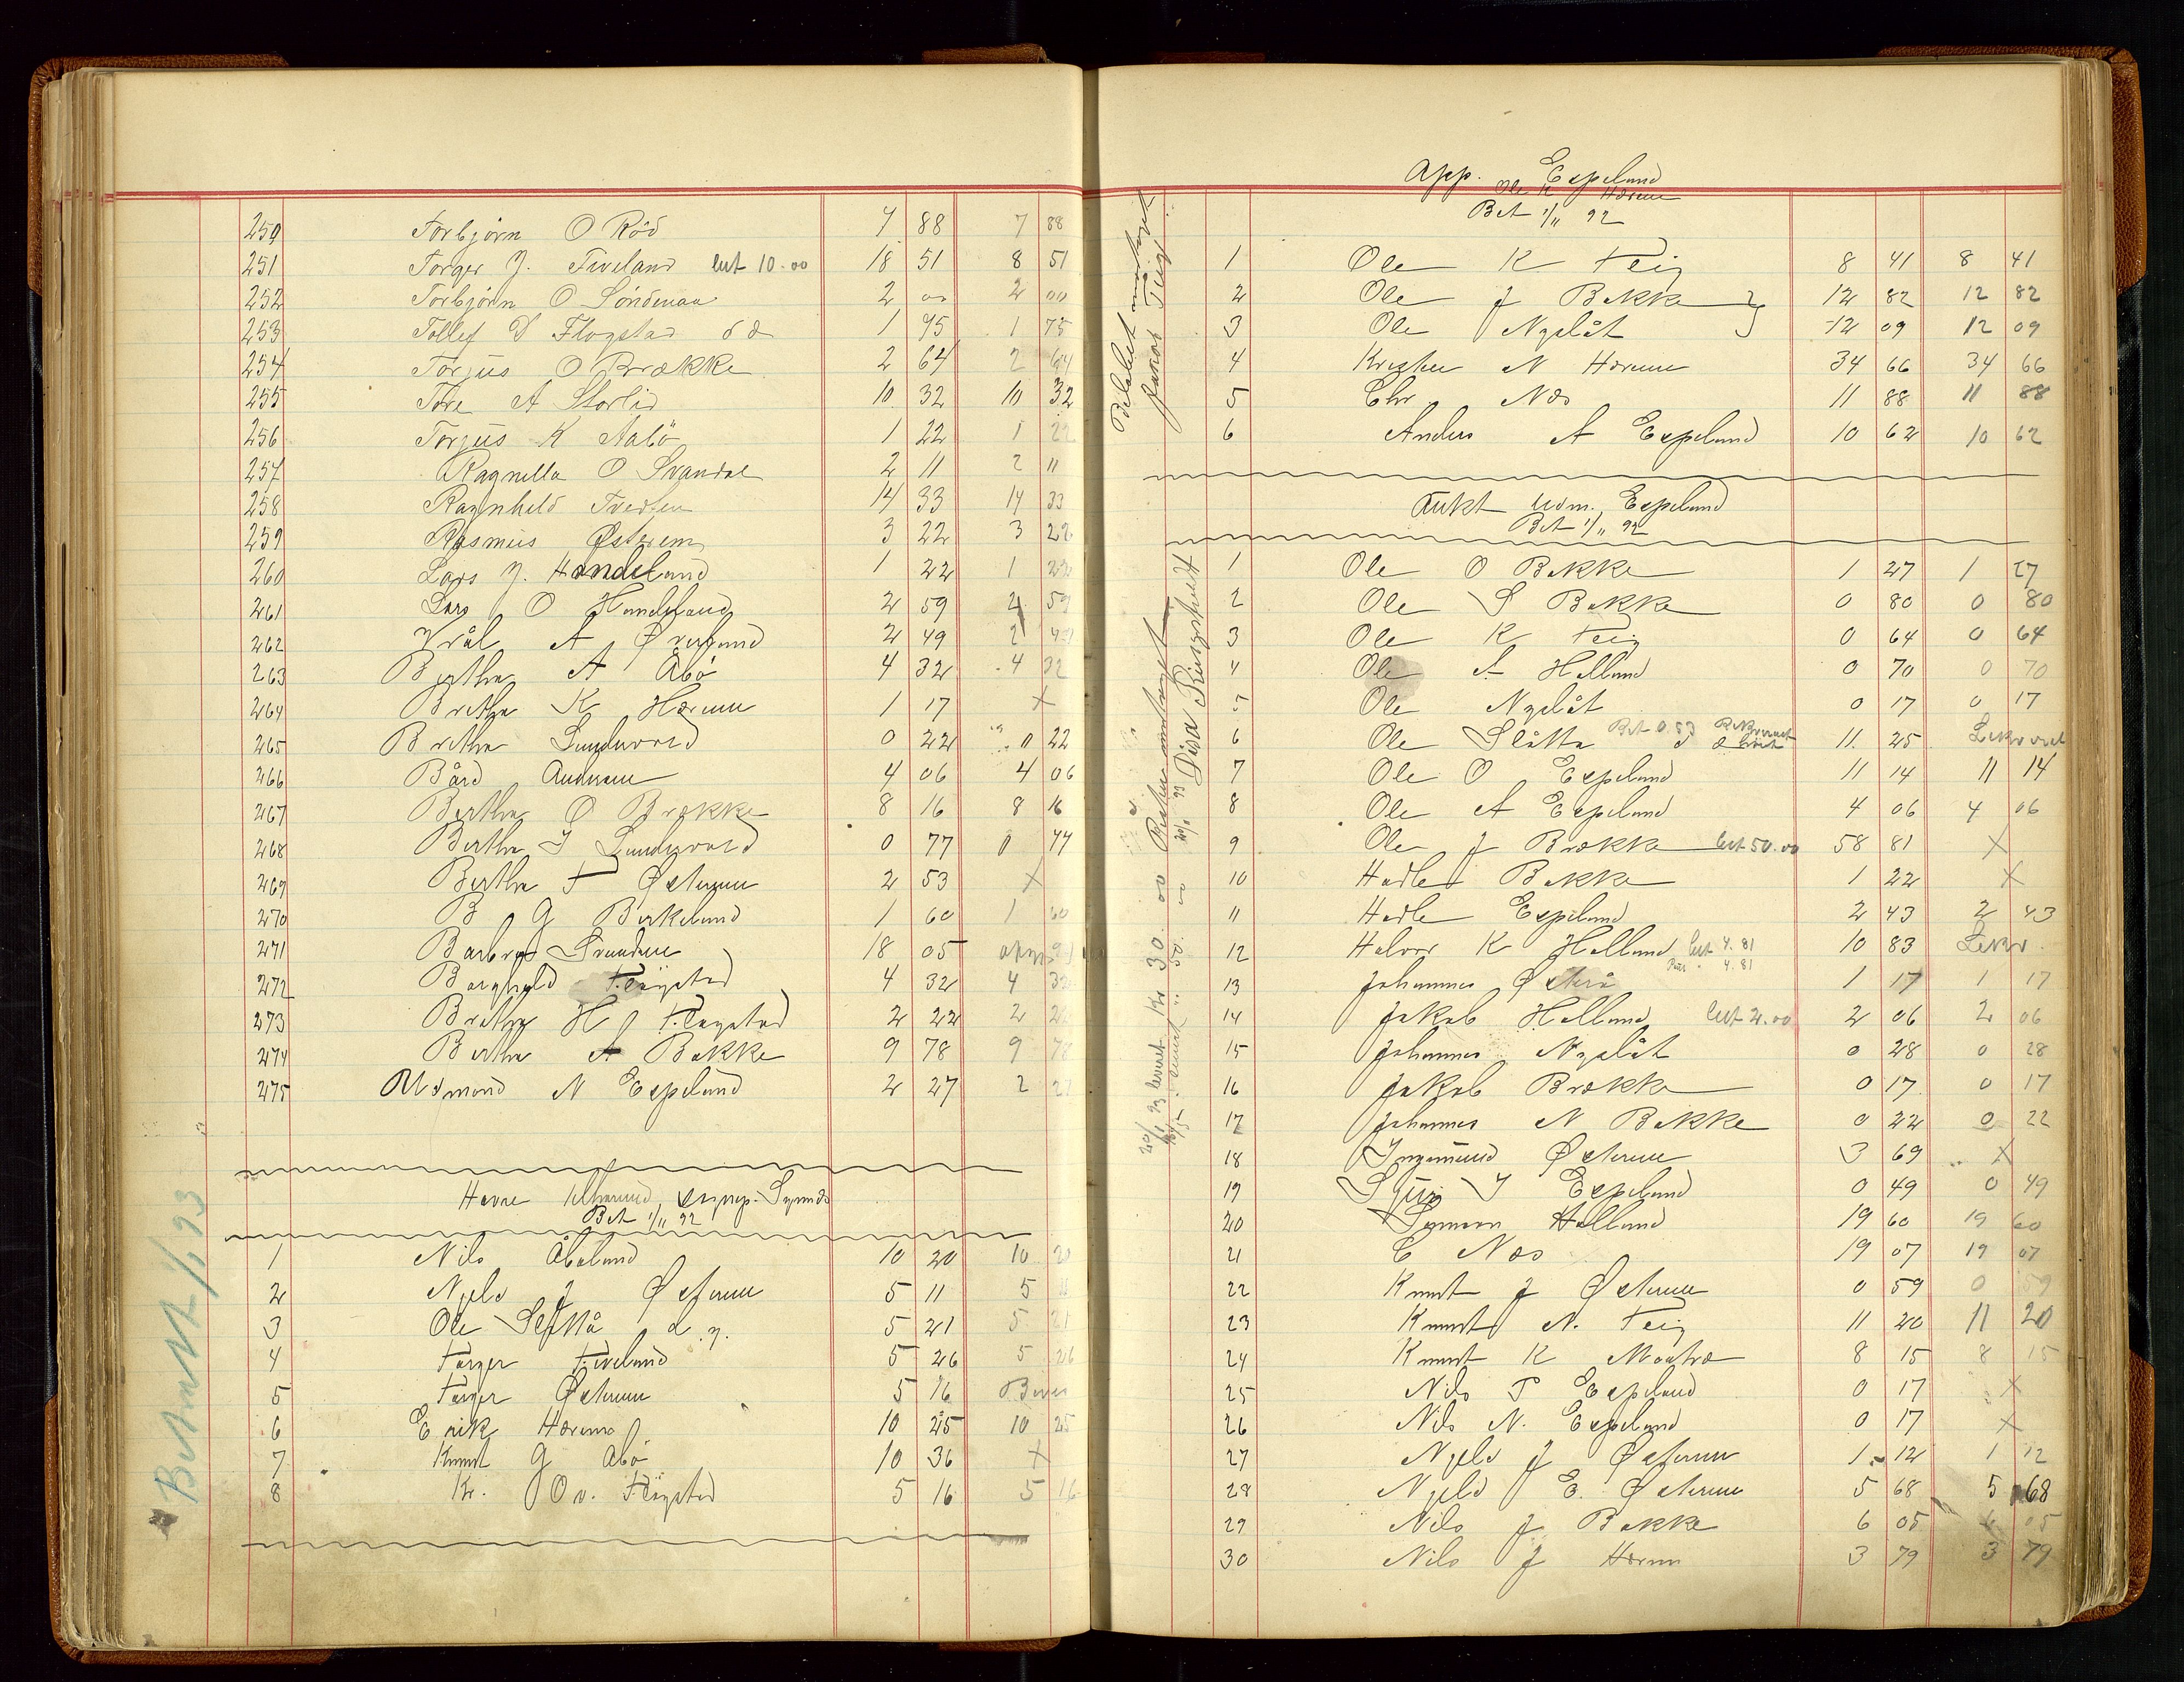 250 Torbjørn O Röd 7 88 7 88
251 Torger J. Tveland bet 10.00 18 51 8 51
252 Torbjørn O Söndenaa 2 00 2 00
253 Tollef S Flogstad 1 75 1 75
254 Torjus O Brække 2 64 2 64
255 Tore A Storlid 10 32 10 32
256 Torjus K Aabö 1 22 1 22
257 Ragnilla O Svandal 2 11 2 11
258 Ragnhild Tveden 14 33 14 33
259 Rasmus Østrem 3 22 3 22
260 Lars J. Handeland 1 22 1 22
261 Lars O Handeland 2 59 2 59
262 Vrål A Øveland 2 49 2 49
263 Bertha A Åbö 4 32 4 32
264 Bretha K Hærem 1 17 X
265 Bretha Lundevold 0 22 0 22
266 Bård 4 06 4 06
267 Bertha O Brække 8 16 8 16
268 Bertha I Lundevold 0 77 0 77
269 Bertha T Østerem 2 53 X
270 B G Birkeland 1 60 1 60
271 Barbro Svendsen 18 05
272 Borghild Flögstad 4 32 4 32
273 Bretha H Flögstad 2 22 2 22
274 Bertha A Bakke 9 78 9 78
275 Aadmund N Espeland 2 27 2 27
Bet 1/11 92
1 Nils Åbeland 10 20 10 20
2 Njeld J Østerem 5 11 5 11
3 Ole d. y. 5 21 5 21
4 Torger Tveland 5 26 5 26
5 Torger Østerem 5 16
6 Erik Hærem 10 25 10 25
7 Knut G Åbö 10 36 X
8 Kr. Ov. Flögstad 5 16 5 16
App. Espeland
Ole K Hærem
Bet 1/11 92
1 Ole K Teig 8 41 8 41
2 Ole J Bakke 12 82 12 82
3 Ole Nyslåt 12 09 12 09
4 Kristen N Hærem 34 66 34 66
5 Chr. Næs 11 88 11 88
6 Anders A Espeland 10 62 10 62
Aukt Udm. Espeland
Bet 1/11 92
1 Ole O Bakke 1 27 1 27
2 Ole S Bakke 0 80 0 80
3 Ole K Teig 0 64 0 64
4 Ole A Helland 0 70 0 70
5 Ole Nyslåt 0 17 0 17
6 Ole Slåtta 11 25
7 Ole O Espeland 11 14 11 14
8 Ole A Espeland 4 06 4 06
9 Ole J Brække bet 50.00 58 81 X
10 Hadle Bakke 1 22 X
11 Hadle Espeland 2 43 2 43
12 Halvor K Helland bet 4.81 10 83
4.81
13 Johannes Østerå 1 17 1 17
14 Jakob Helland bet 2.00 2 06 2 06
15 Johannes Nyslåt 0 28 0 28
16 Jakob Brække 0 17 0 17
17 Johannes N Bakke 0 22 0 22
18 Ingemund Østerem 3 69 X
19 Sjur I Espeland 0 49 0 49
20 Symeon Helland 19 60 19 60
21 C Næs 19 07 19 07
22 Knut J Østerem 0 59 0 59
23 Knut N. Teig 11 20 11 20
24 Knut K Moatræ 8 15 8 15
25 Nils T Espeland 0 17 X
26 Nils N. Espeland 0 17 X
27 Njeld J Østerem 1 12 1 12
28 Njeld E. Østerem 5 68 5 68
29 Nils J Bakke 6 05 6 05
30 Nils J Hærem 3 79 3 79